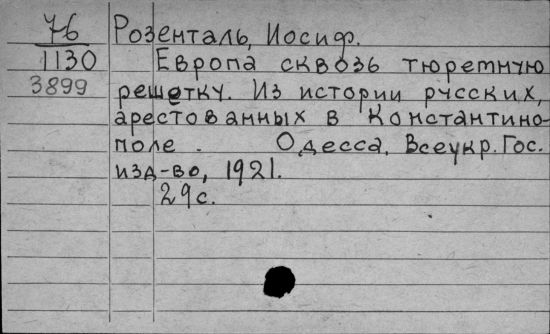 76
1130
3899
Розенталь, Иосиф.
Европа сквозь тюремную
решетку. Из истории русских,
арестованных в Константино-
поле. Одесса, Всеукр. Гос.
изд-во, 1921.
29 с.